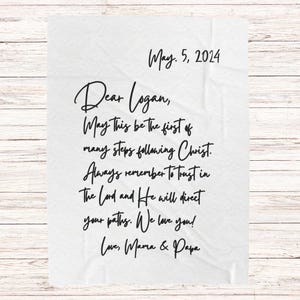 May. 5, 2024
Dear Logan,
May this be the first of
many steps following Christ.
Always remember to trust in
the Lord and He will direct
your paths. We love you!
Love, Mama & Papa